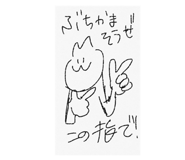 ぶちかま
そうぜ
この指で!